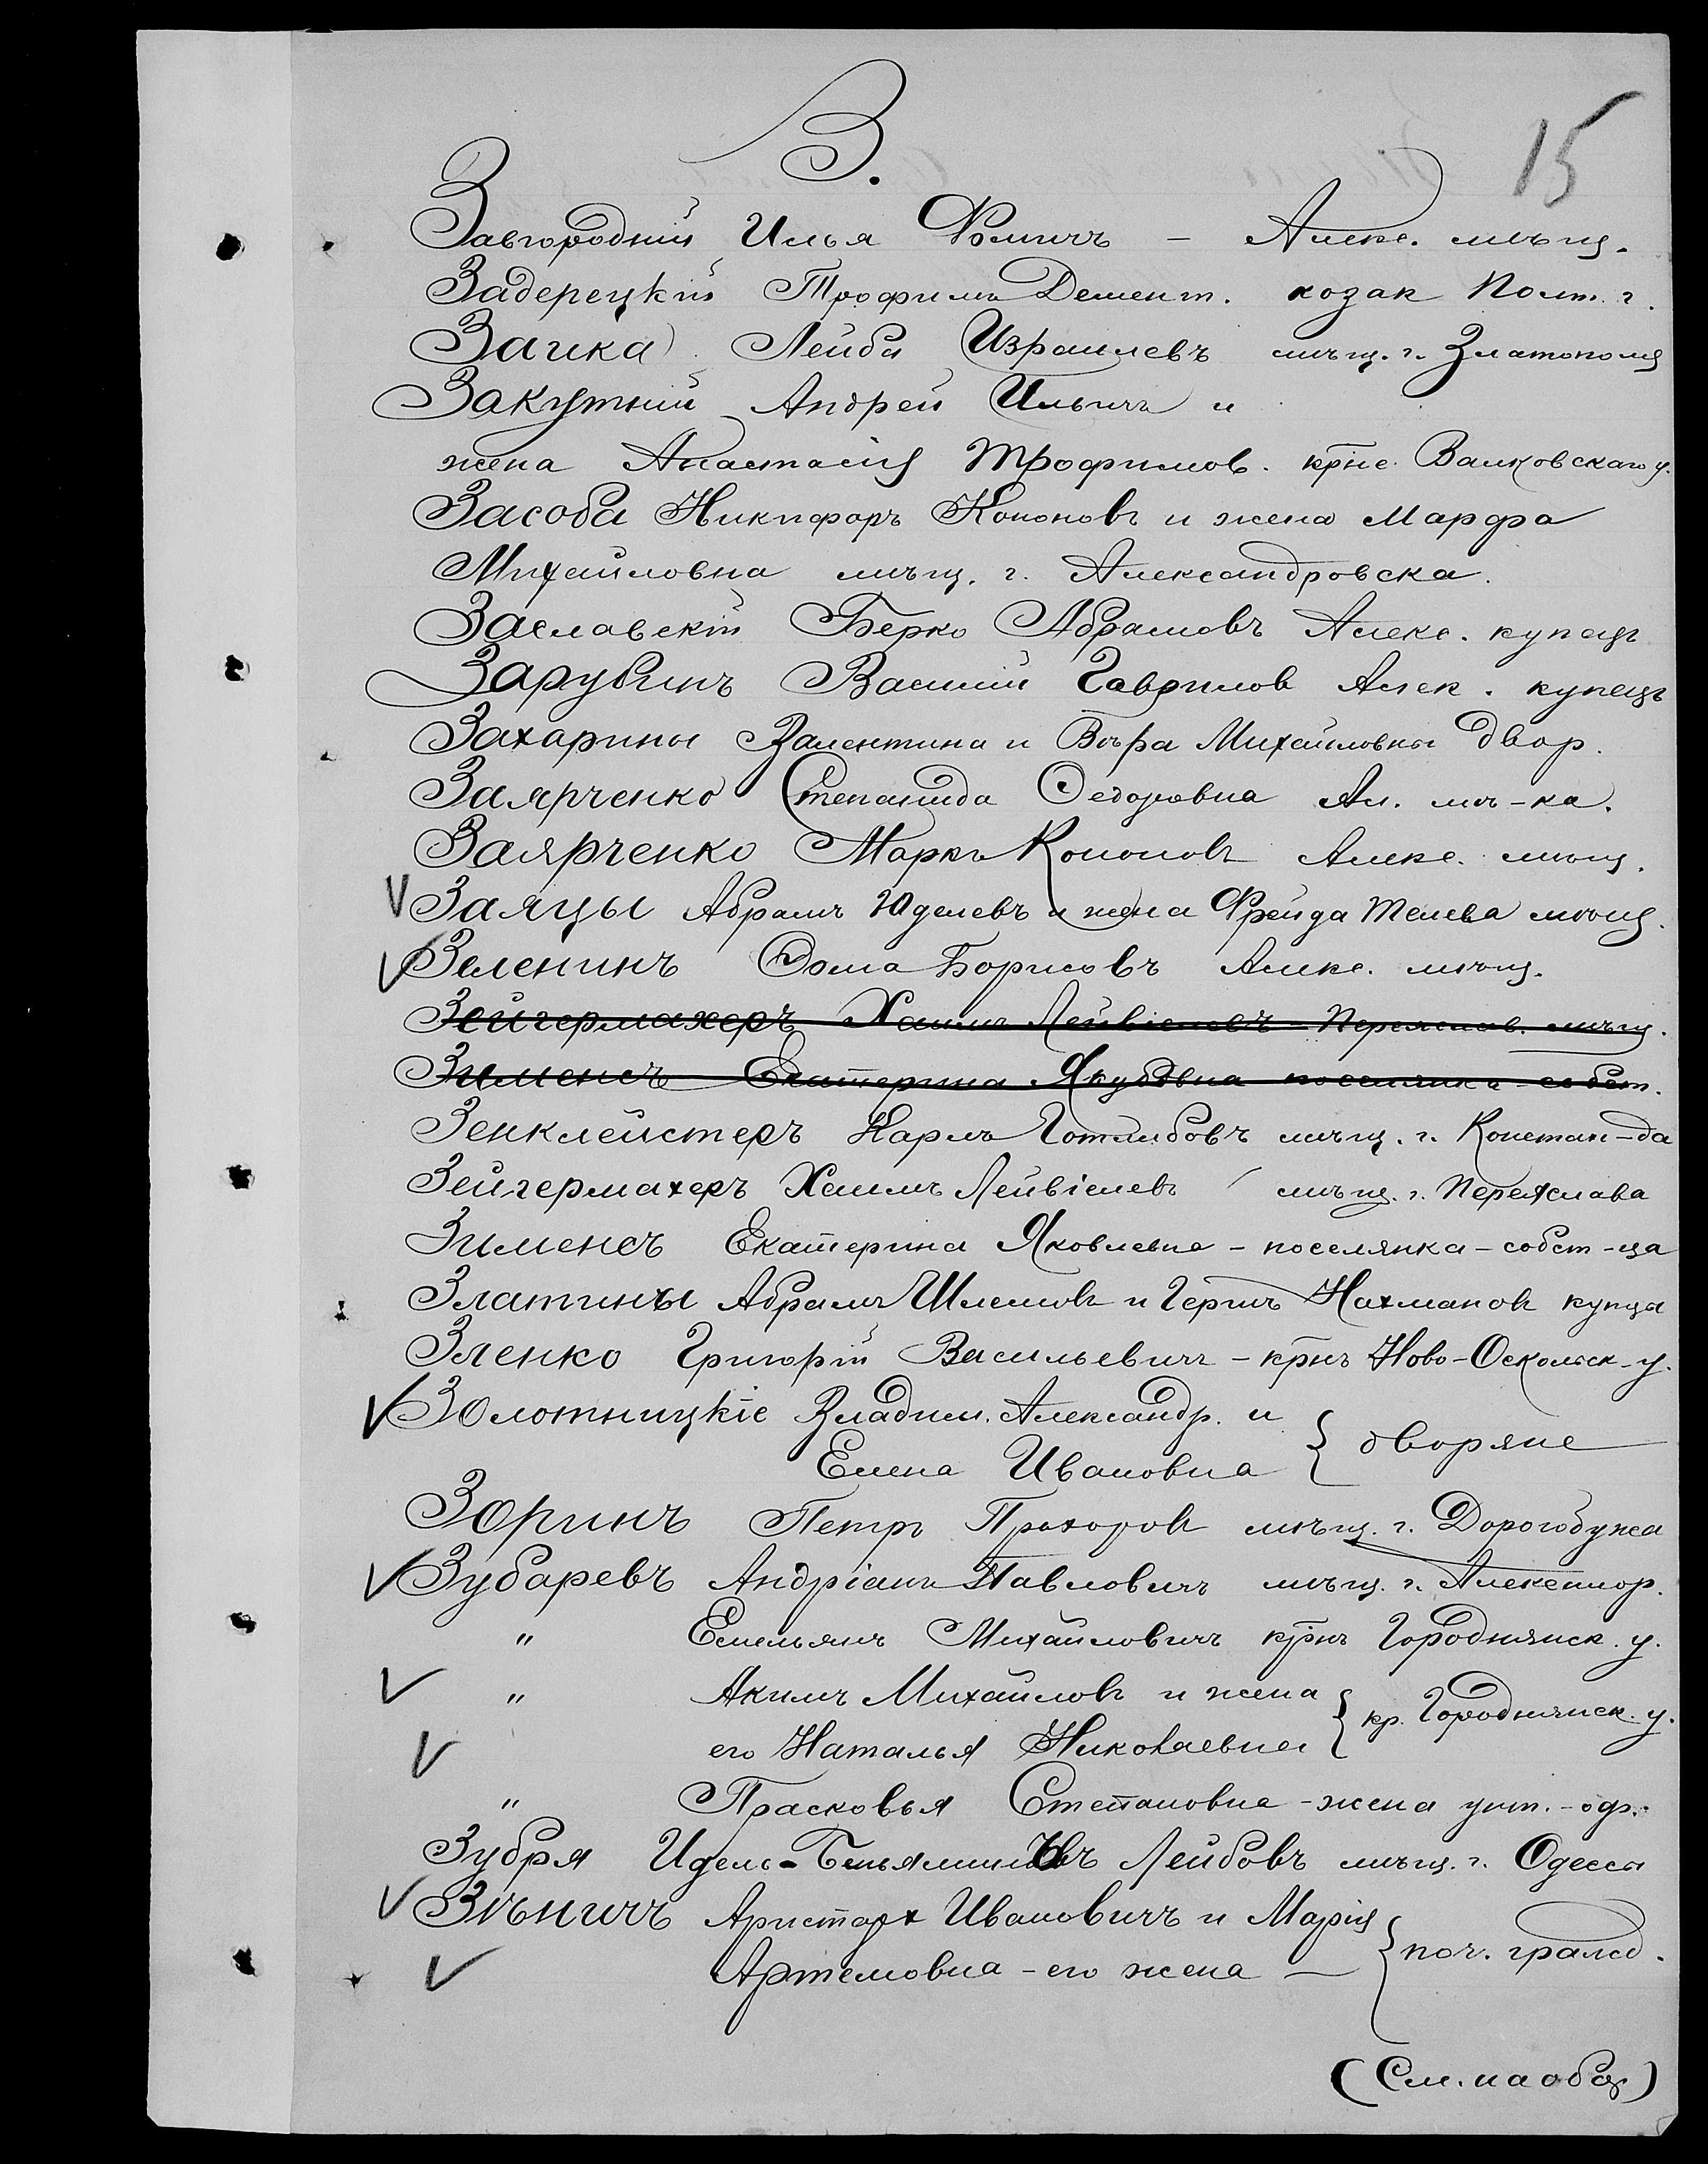 З.
15
Завгородній Илья Фомичъ – Алекс. мѣщ.
Задерецкій Трофимъ Демент. козак Полт. г.
Заика Лейба Израилевъ мѣщ. г. Златополя
Закутний Андрей Ильичъ и
жена Анастасія Трофимов. крне. Валковскаго у.
Засоба Никифоръ Кононовъ и жена Марфа
Михайловна мѣщ. г. Александровска.
Заславскій Берко Абрамовъ Алекс. купецъ
Зарубинъ Василій Гаврилов Алек. купецъ
Захарины Валентина и Вѣра Михайловны двор.
Заярченко Степанида Ѳедоровна Ал. мѣ-ка.
Заярченко Маркъ Кононовъ Алекс. мѣщ.
Заяцы Абрамъ Юделевъ и жена Фрейда Телева мѣщ.
Зеленинъ Ѳома Борисовъ Алекс. мѣщ.
Зейгермахеръ Хаимъ Лейвіелевъ – Переяслав. мѣщ.
Зименсъ Екатерина Якубовна поселянка – собст.
Зенклейстеръ Карлъ Готлибовъ мѣщ. г. Констан-да
Зейгермахеръ Хаимъ Лейвіелевъ мѣщ. г. Переяслава
Зименсъ Екатерина Яковлевна – поселянка – собст-ца
Златины Абрамъ Шлемовъ и Гершъ Нахмановъ купцы
Зленко Григорій Васильевичъ – крнъ Ново-Оскольск. у.
Золотницкіе Владим. Александр. и
Елена Ивановна } дворяне
Зоринъ Петръ Прохоровъ мѣщ. г. Дорогобужа
Зубаревъ Андріанъ Павловичъ мѣщ. г. Алексанор.
" Емельянъ Михайловичъ крнъ Городнянск. у.
" Акимъ Михайловъ и жена
его Наталья Николаевна } кр. Городнянск. у.
" Прасковья Степановна – жена унт. – оф.
Зубря Идель-Беньяминовъ Лейбовъ мѣщ. г. Одессы
Зѣничъ Аристарх Ивановичъ и Марія
Артемовна – его жена – } поч. гражд.
(См. на обор)